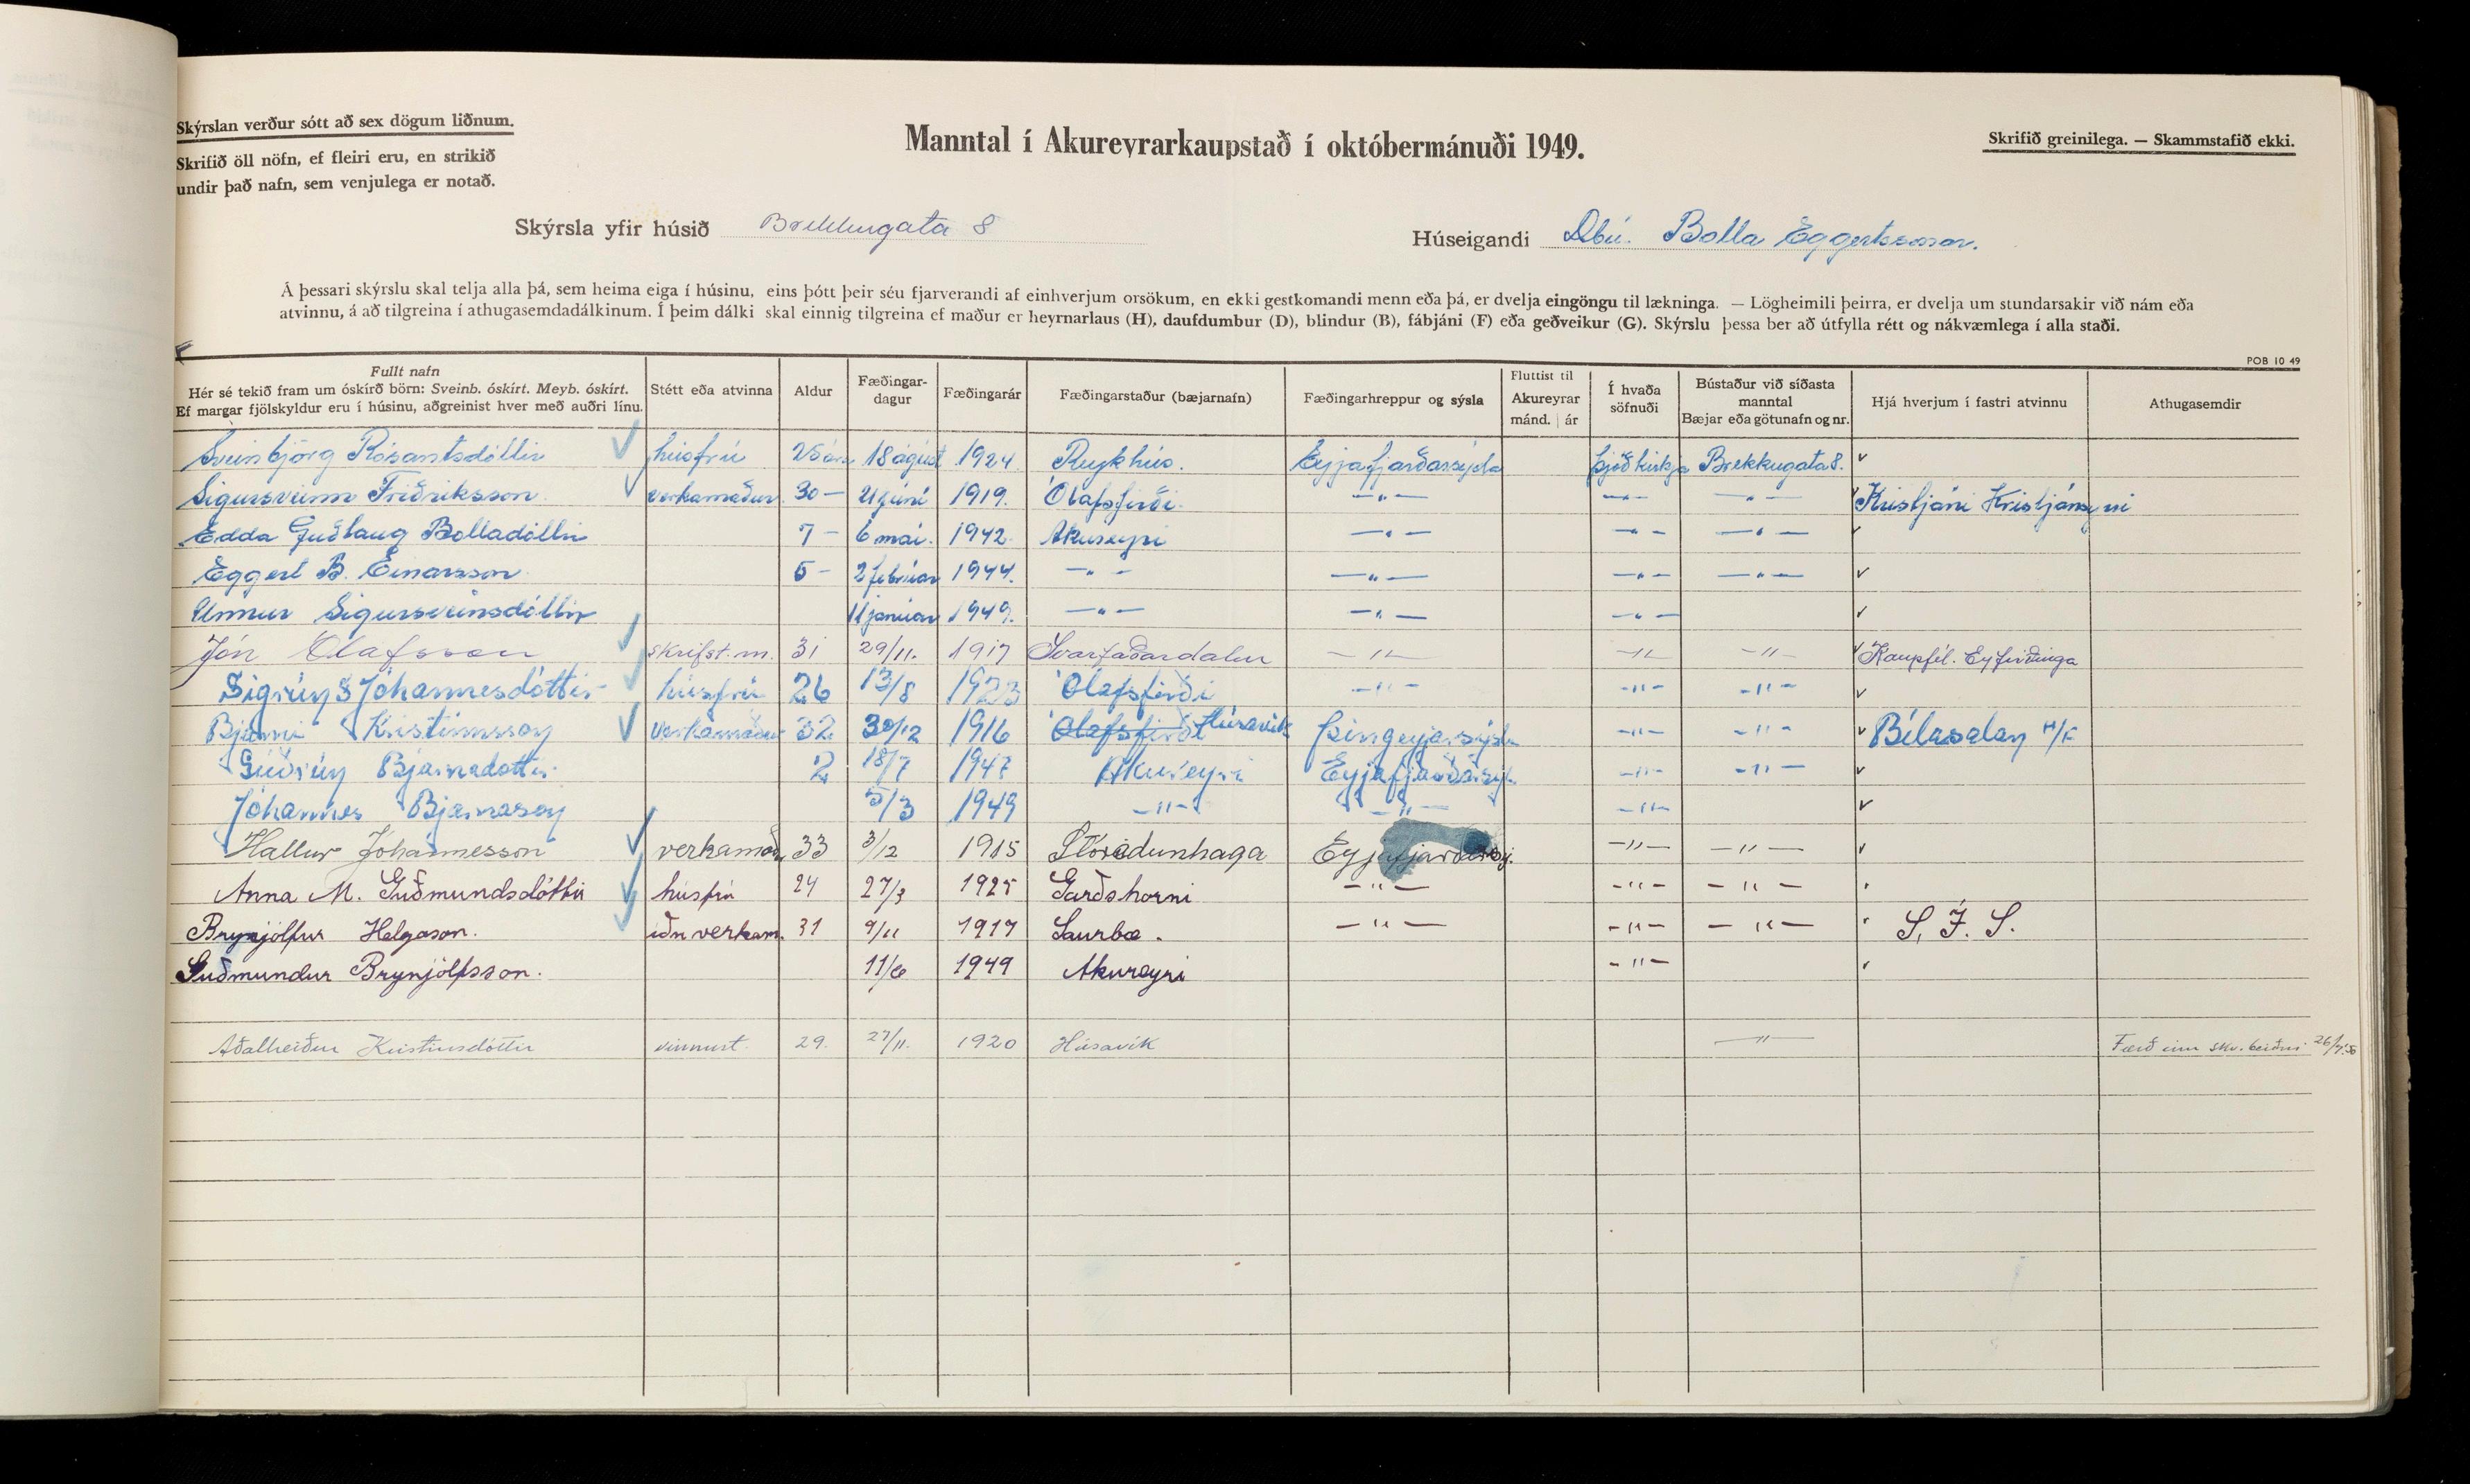 Skýrslan verður sótt að sex dögum liðnum.
Skrifið öll nöfn, ef fleiri eru, en strikið
undir það nafn, sem venjulega er notað.
Manntal í Akureyrarkaupstað í októbermánuði 1949.
Skrifið greinilega. — Skammstafið ekki.
Skýrsla yfir húsið Brekkugata 8
Húseigandi Dbú. Bolla Eggertssonar.
Á þessari skýrslu skal telja alla þá, sem heima eiga í húsinu, eins þótt þeir séu fjarverandi af einhverjum orsökum, en ekki gestkomandi menn eða þá, er dvelja eingöngu til lækninga. — Lögheimili þeirra, er dvelja um stundarsakir við nám eða
atvinnu, á að tilgreina í athugasemdadálkinum. Í þeim dálki skal einnig tilgreina ef maður er heyrnarlaus (H), daufdumbur (D), blindur (B), fábjáni (F) eða geðveikur (G). Skýrslu þessa ber að útfylla rétt og nákvæmlega í alla staði.
POB 10 49
Fullt nafn
Hér sé tekið fram um óskírð börn: Sveinb. óskírt. Meyb. óskírt.
Ef margar fjölskyldur eru í húsinu, aðgreinist hver með auðri línu.
Stétt eða atvinna
Aldur
Fæðingar-
dagur
Fæðingarár
Fæðingarstaður (bæjarnafn)
Fæðingarhreppur og sýsla
Fluttist til
Akureyrar
mánd. | ár
Í hvaða
söfnuði
Bústaður við síðasta
manntal
Bæjar eða götunafn og nr.
Hjá hverjum í fastri atvinnu
Athugasemdir
Sveinbjörg Rósantsdóttir ✓ húsfrú 25 ára 18 ágúst 1924 Reykhús. Eyjafjarðarsýsla þjóðkirkja Brekkugata 8. ✓
Sigursveinn Friðriksson ✓ verkamaður. 30 — 21 júní 1919. Ólafsfirði. —"— —"— —"— ✓ Kristjáni Kristjánssyni
Edda Guðlaug Bolladóttir 7 — 6 mái. 1942. Akureyri —"— —"— —"— ✓
Eggert B. Einarsson 5 — 2 febrúar 1944. —"— —"— —"— —"— ✓
Unnur Sigursveinsdóttir 11 janúar 1949. —"— —"— —"— ✓
Jón Ólafsson ✓ skrifst. m. 31 29/11. 1917 Svarfaðardalur —"— —"— —"— ✓ Kaupfél. Eyfirðinga
Sigrún S Jóhannesdóttir ✓ húsfrú 26 13/8 1923 Ólafsfirði —"— —"— —"— ✓
Bjarni Kristinsson ✓ verkamaður 32 30/12 1916 Ólafsfirði Húsavík Þingeyjarsýsla —"— —"— ✓ Bílasalan H/F
Guðrún Bjarnadóttir 2 18/7 1947 Akureyri Eyjafjarðarsýs. —"— —"— ✓
Jóhannes Bjarnason 5/3 1949 —"— —"— —"— ✓
Hallur Jóhannesson ✓ verkamað. 33 3/12 1915 Stóradunhaga Eyjafjarðarsý. —"— —"— ✓
Anna M. Guðmundsdóttir ✓ húsfrú 24 27/3 1925 Garðshorni —"— —"— —"—
Brynjólfur Helgason. ✓ iðnverkam. 31 9/11 1917 Saurbæ. —"— —"— —"— S. Í. S.
Guðmundur Brynjólfsson. 11/6 1949 Akureyri —"—
Aðalheiður Kristinsdóttir vinnust. 29. 27/11. 1920 Húsavík —"— Færð inn skv. beiðni 26/7.'50